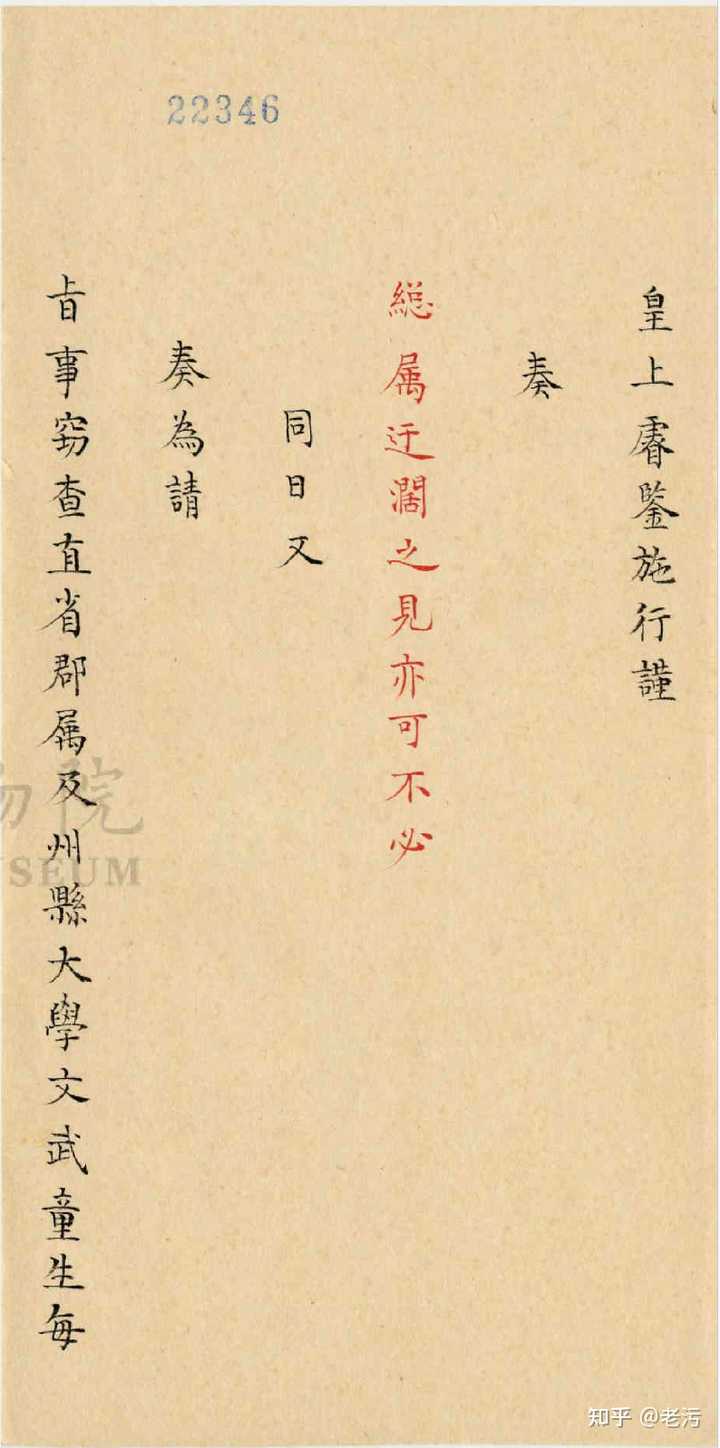 22346
皇上睿鑒施行謹
奏
緫属迂濶之見亦可不必
同日又
奏為請
旨事窃查直省郡属及州縣大學文武童生每
物院
USEUM
知乎 @老污